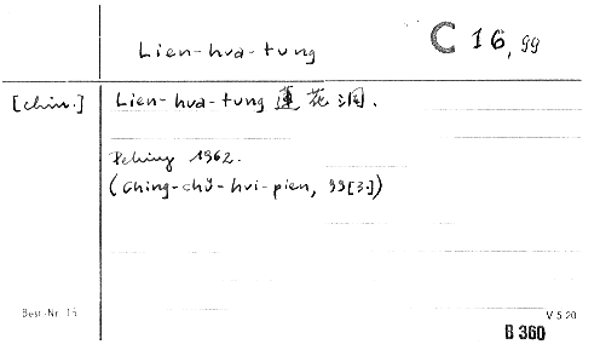 Lien-hua-tung
C 16, 99
[chin.] Lien-hua-tung 蓮花洞.
Peking 1962.
(Ching-chü-hui-pien, 99[3.])
Best-Nr. 15
V 5 20
B 360